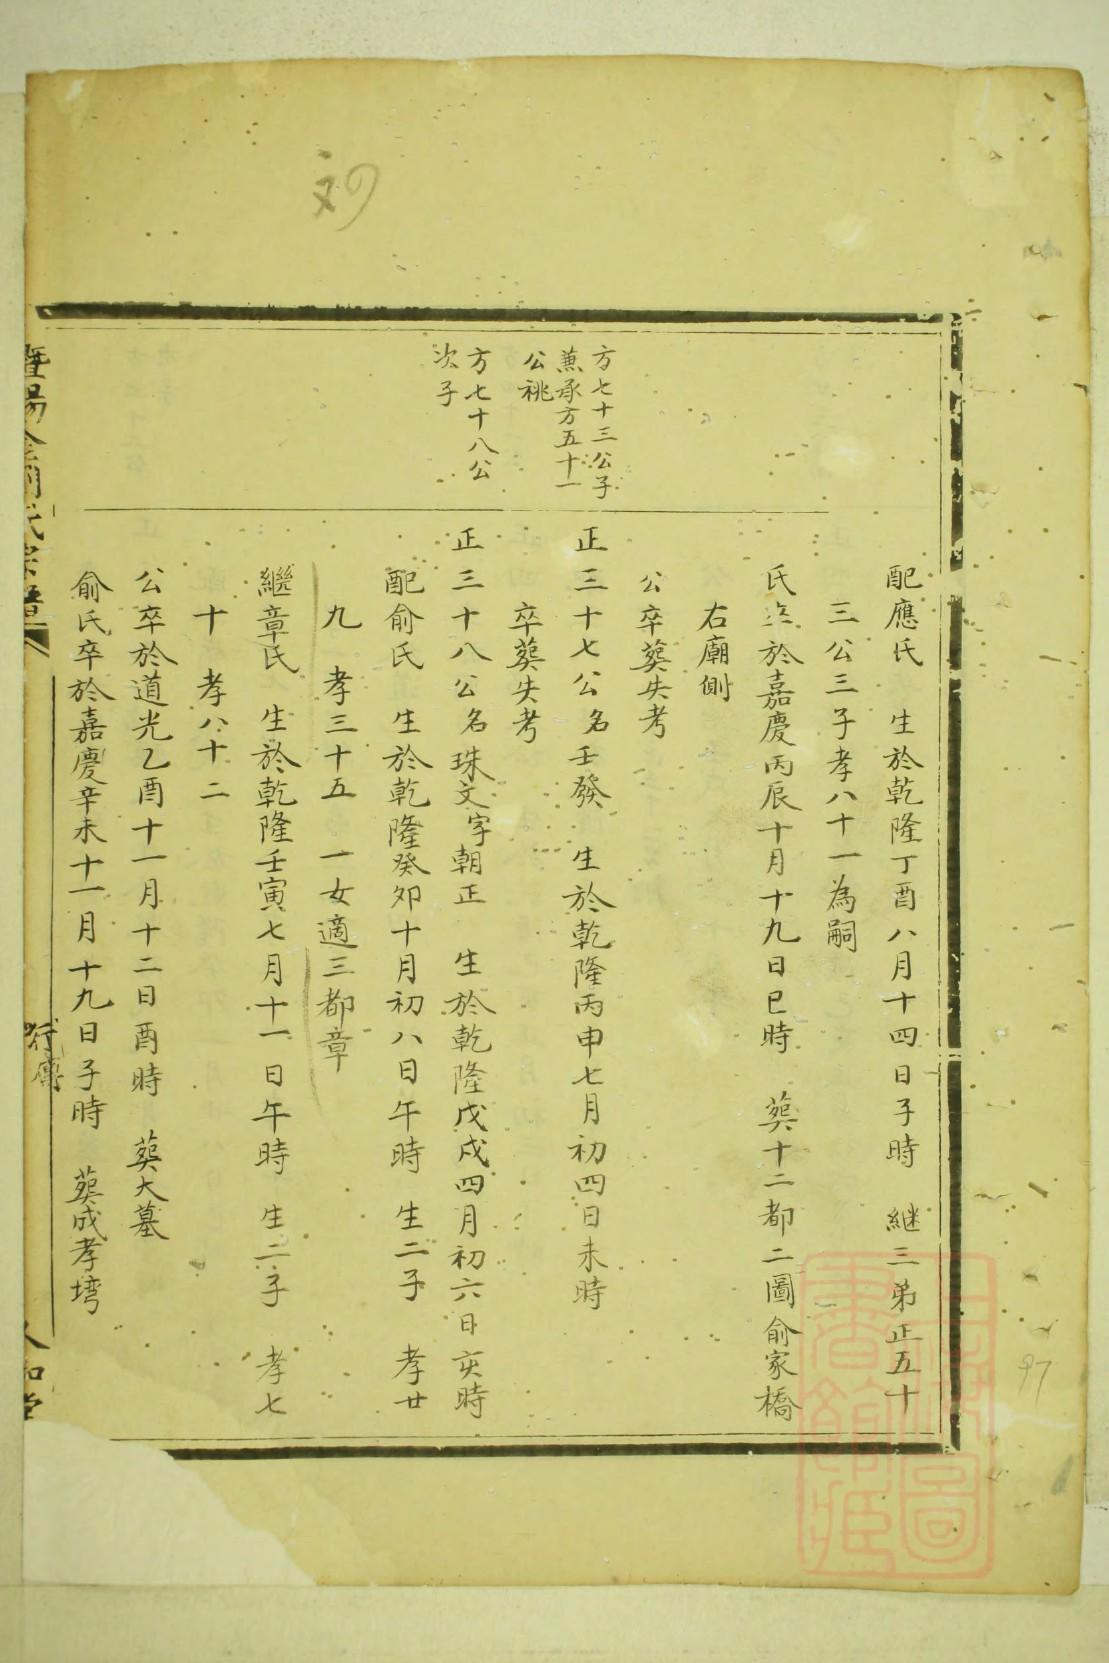 刘
配應氏 生於乾隆丁酉八月十四日子時 継三弟正五十
三公三子孝八十一為嗣
氏卒於嘉慶丙辰十月十九日巳時 葬十二都二圖俞家橋
右廟側
公卒葬失考
方七十三公子
蕉承方五十一
公祧
正三十七公名壬發 生於乾隆丙申七月初四日未時
卒葬失考
方七十八公
次子
正三十八公名珠文字朝正 生於乾隆戊戌四月初六日亥時
配俞氏 生於乾隆癸夘十月初八日午時 生二子 孝廿
九 孝三十五 一女適三都章
繼章氏 生於乾隆壬寅七月十一日午時 生二子 孝七
十 孝八十二
公卒於道光乙酉十一月十二日酉時 葬大墓
俞氏卒於嘉慶辛未十一月十九日子時 葬成孝塆
暨陽 氏宗譜
行傳
97